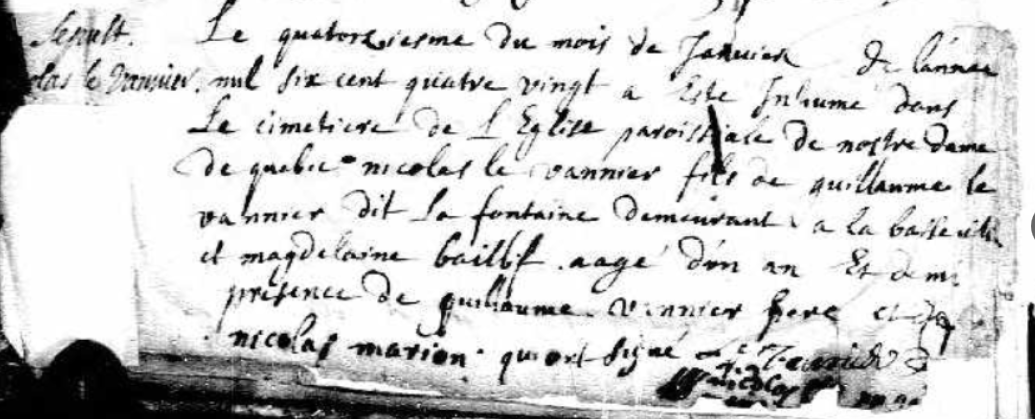 Sepult.
le vannier.
Le quatorziesme du mois de Januier de lannee
mil six cent quatre vingt a Este Inhumé dans
Le cimetiere de L Eglise paroissiale de nostre dame
de quebec nicolas le vannier fils de guillaume le
vannier dit la fontaine demeurant a la basse ville
et magdelaine baillif aagé d'un an Et demi
presence de guillaume vannier pere et de
nicolas marion qui ont signé
nicolas